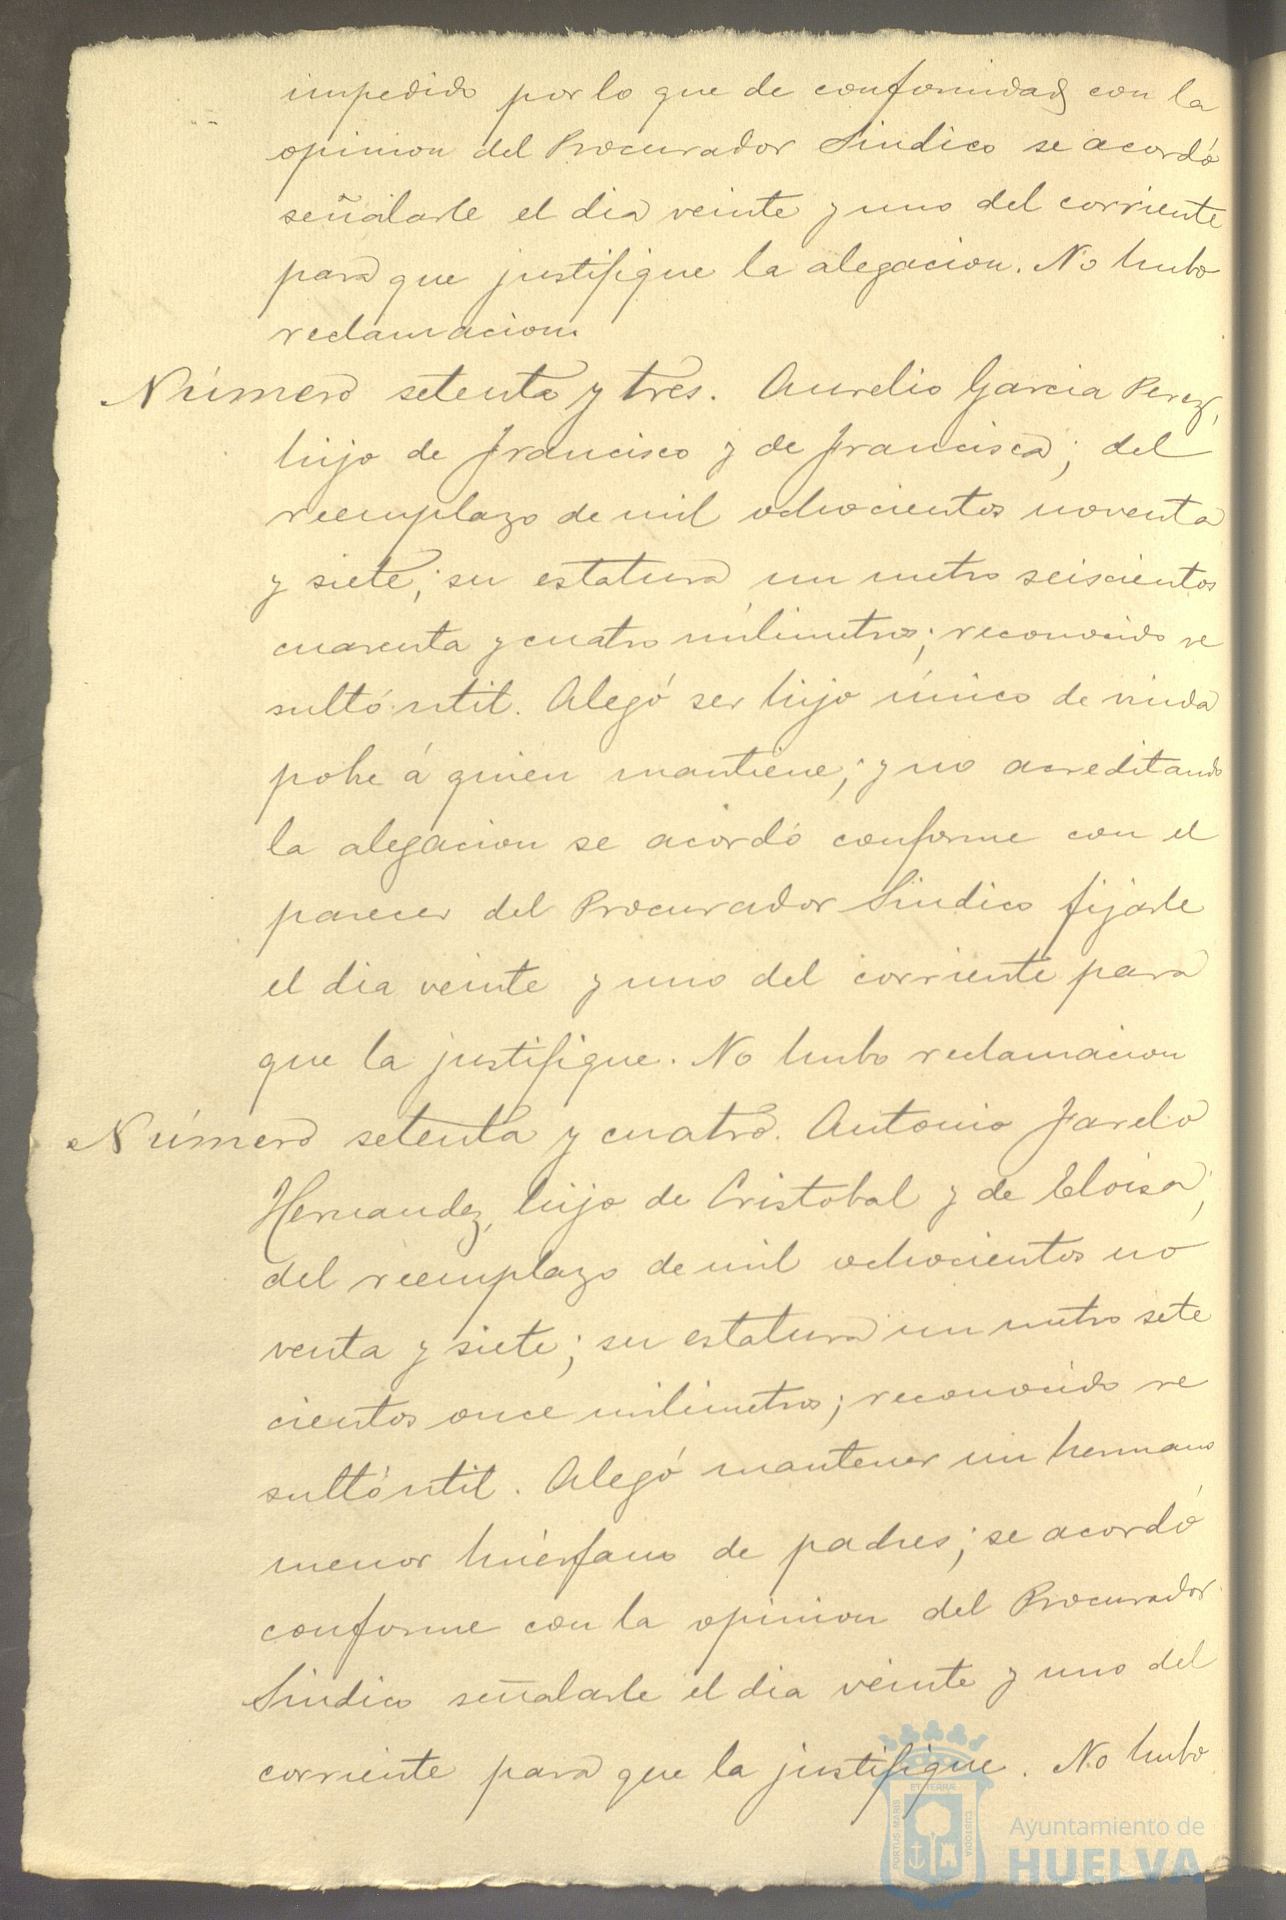 impedido por lo que de conformidad con la
opinion del Procurador Sindico se acordó
señalarle el dia veinte y uno del corriente
para que justifique la alegacion. No hubo
reclamacion.
Número setenta y tres. Aurelio Garcia Perez,
hijo de Francisco y de Francisca; del
reemplazo de mil ochocientos noventa
y siete; su estatura un metro seiscientos
cuarenta y cuatro milimetros; reconocido re
sultó util. Alegó ser hijo único de viuda
pobre á quien mantiene; y no acreditando
la alegacion se acordó conforme con el
parecer del Procurador Sindico fijarle
el dia veinte y uno del corriente para
que la justifique. No hubo reclamacion
Número setenta y cuatro. Antonio Farelo
Hernandez, hijo de Cristobal y de Eloisa;
del reemplazo de mil ochocientos no
venta y siete; su estatura un metro sete
cientos once milimetros; reconocido re
sultó util. Alegó mantener un hermano
menor huérfano de padres; se acordó
conforme con la opinion del Procurador
Sindico señalarle el dia veinte y uno del
corriente para que la justifique. No hubo
PORTUS MARIS ET TERRÆ CUSTODIA
Ayuntamiento de
HUELVA